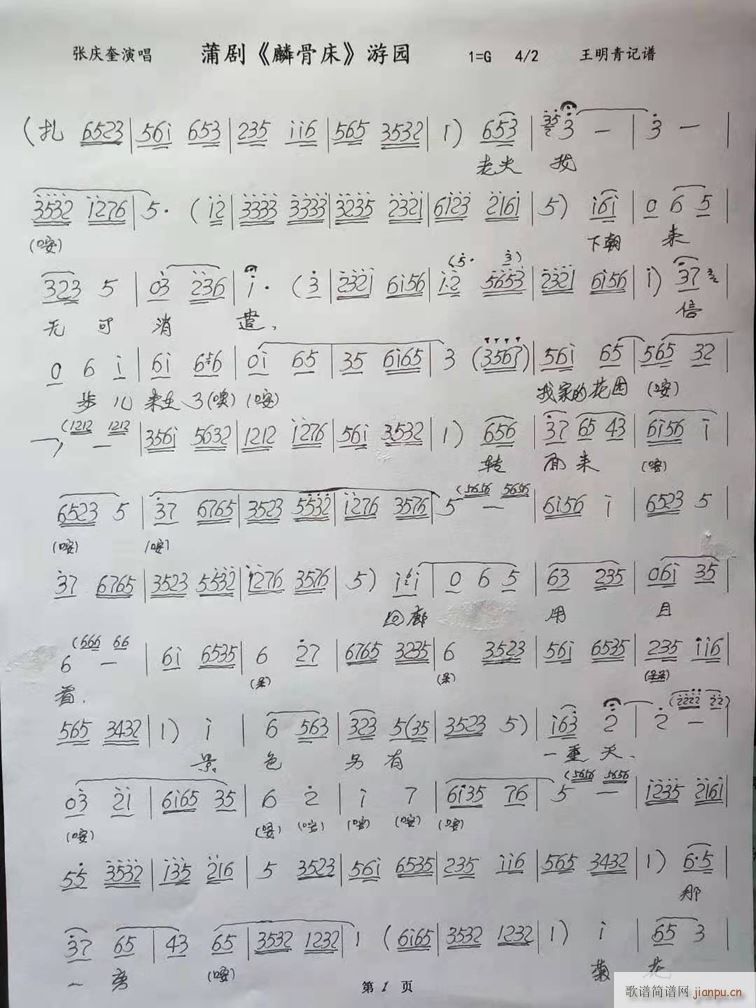 张庆奎演唱 蒲剧《麟骨床》游园 1=G 4/2 王明青记谱
(扎 6523 | 561 653 | 235 116 | 565 3532 | 1) 653 | 3 — | 3 —
老夫 我
3532 1276 | 5· (12 | 3333 3333 | 3235 2321 | 6123 2161 | 5) 161 | 0 6 5
(咹) 下朝 来
323 5 | 03 236 | 1· (3 | 2321 6156 | 1·2 5653 | 2321 6156 | 1) 37
无可 消 遣, 信
0 6 1 | 61 6#6 | 01 65 | 35 6165 | 3 (3567) | 561 65 | 565 32
步儿 来 了(唉)(咹) 我家的花园 (咹)
— (1212 1212 | 3561 5632 | 1212 1276 | 561 3532 | 1) 656 | 37 65 43 | 6156 1
转 面来 (咹)
6523 5 | 37 6765 | 3523 5532 | 1276 3576 | 5 — (5656 5656 | 6156 1 | 6523 5
(咹) (咹)
37 6765 | 3523 5532 | 1276 3576 | 5) 111 | 0 6 5 | 63 235 | 061 35
回廊 用 目
6 — (666 66 | 61 6535 | 6 27 | 6765 3235 | 6 3523 | 561 6535 | 235 116
看.
565 3432 | 1) 1 | 6 563 | 323 5(35 | 3523 5) | 163 2 | 2 — (2222 22
景 色 另有 一重天.
03 21 | 6165 35 | 6 2 | 1 7 | 6135 76 | 5 — (5656 5656 | 1235 2161
(咹) (咹) (咹) (咹) (咹) (咹)
55 3532 | 135 216 | 5 3523 | 561 6535 | 235 116 | 565 3432 | 1) 6·5
那
37 65 | 43 65 | 3532 1232 | 1 (6165 | 3532 1232 | 1) 1 | 65 3
一旁 (咹) 菊 花
第 1 页
歌谱简谱网
jianpu.cn